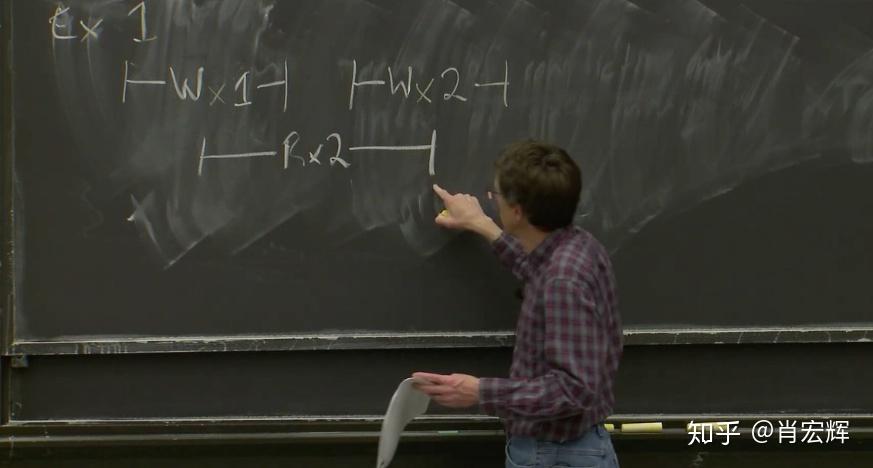 Ex 1
|-Wx1-| |-Wx2-|
|-Rx2-|
知乎 @肖宏辉